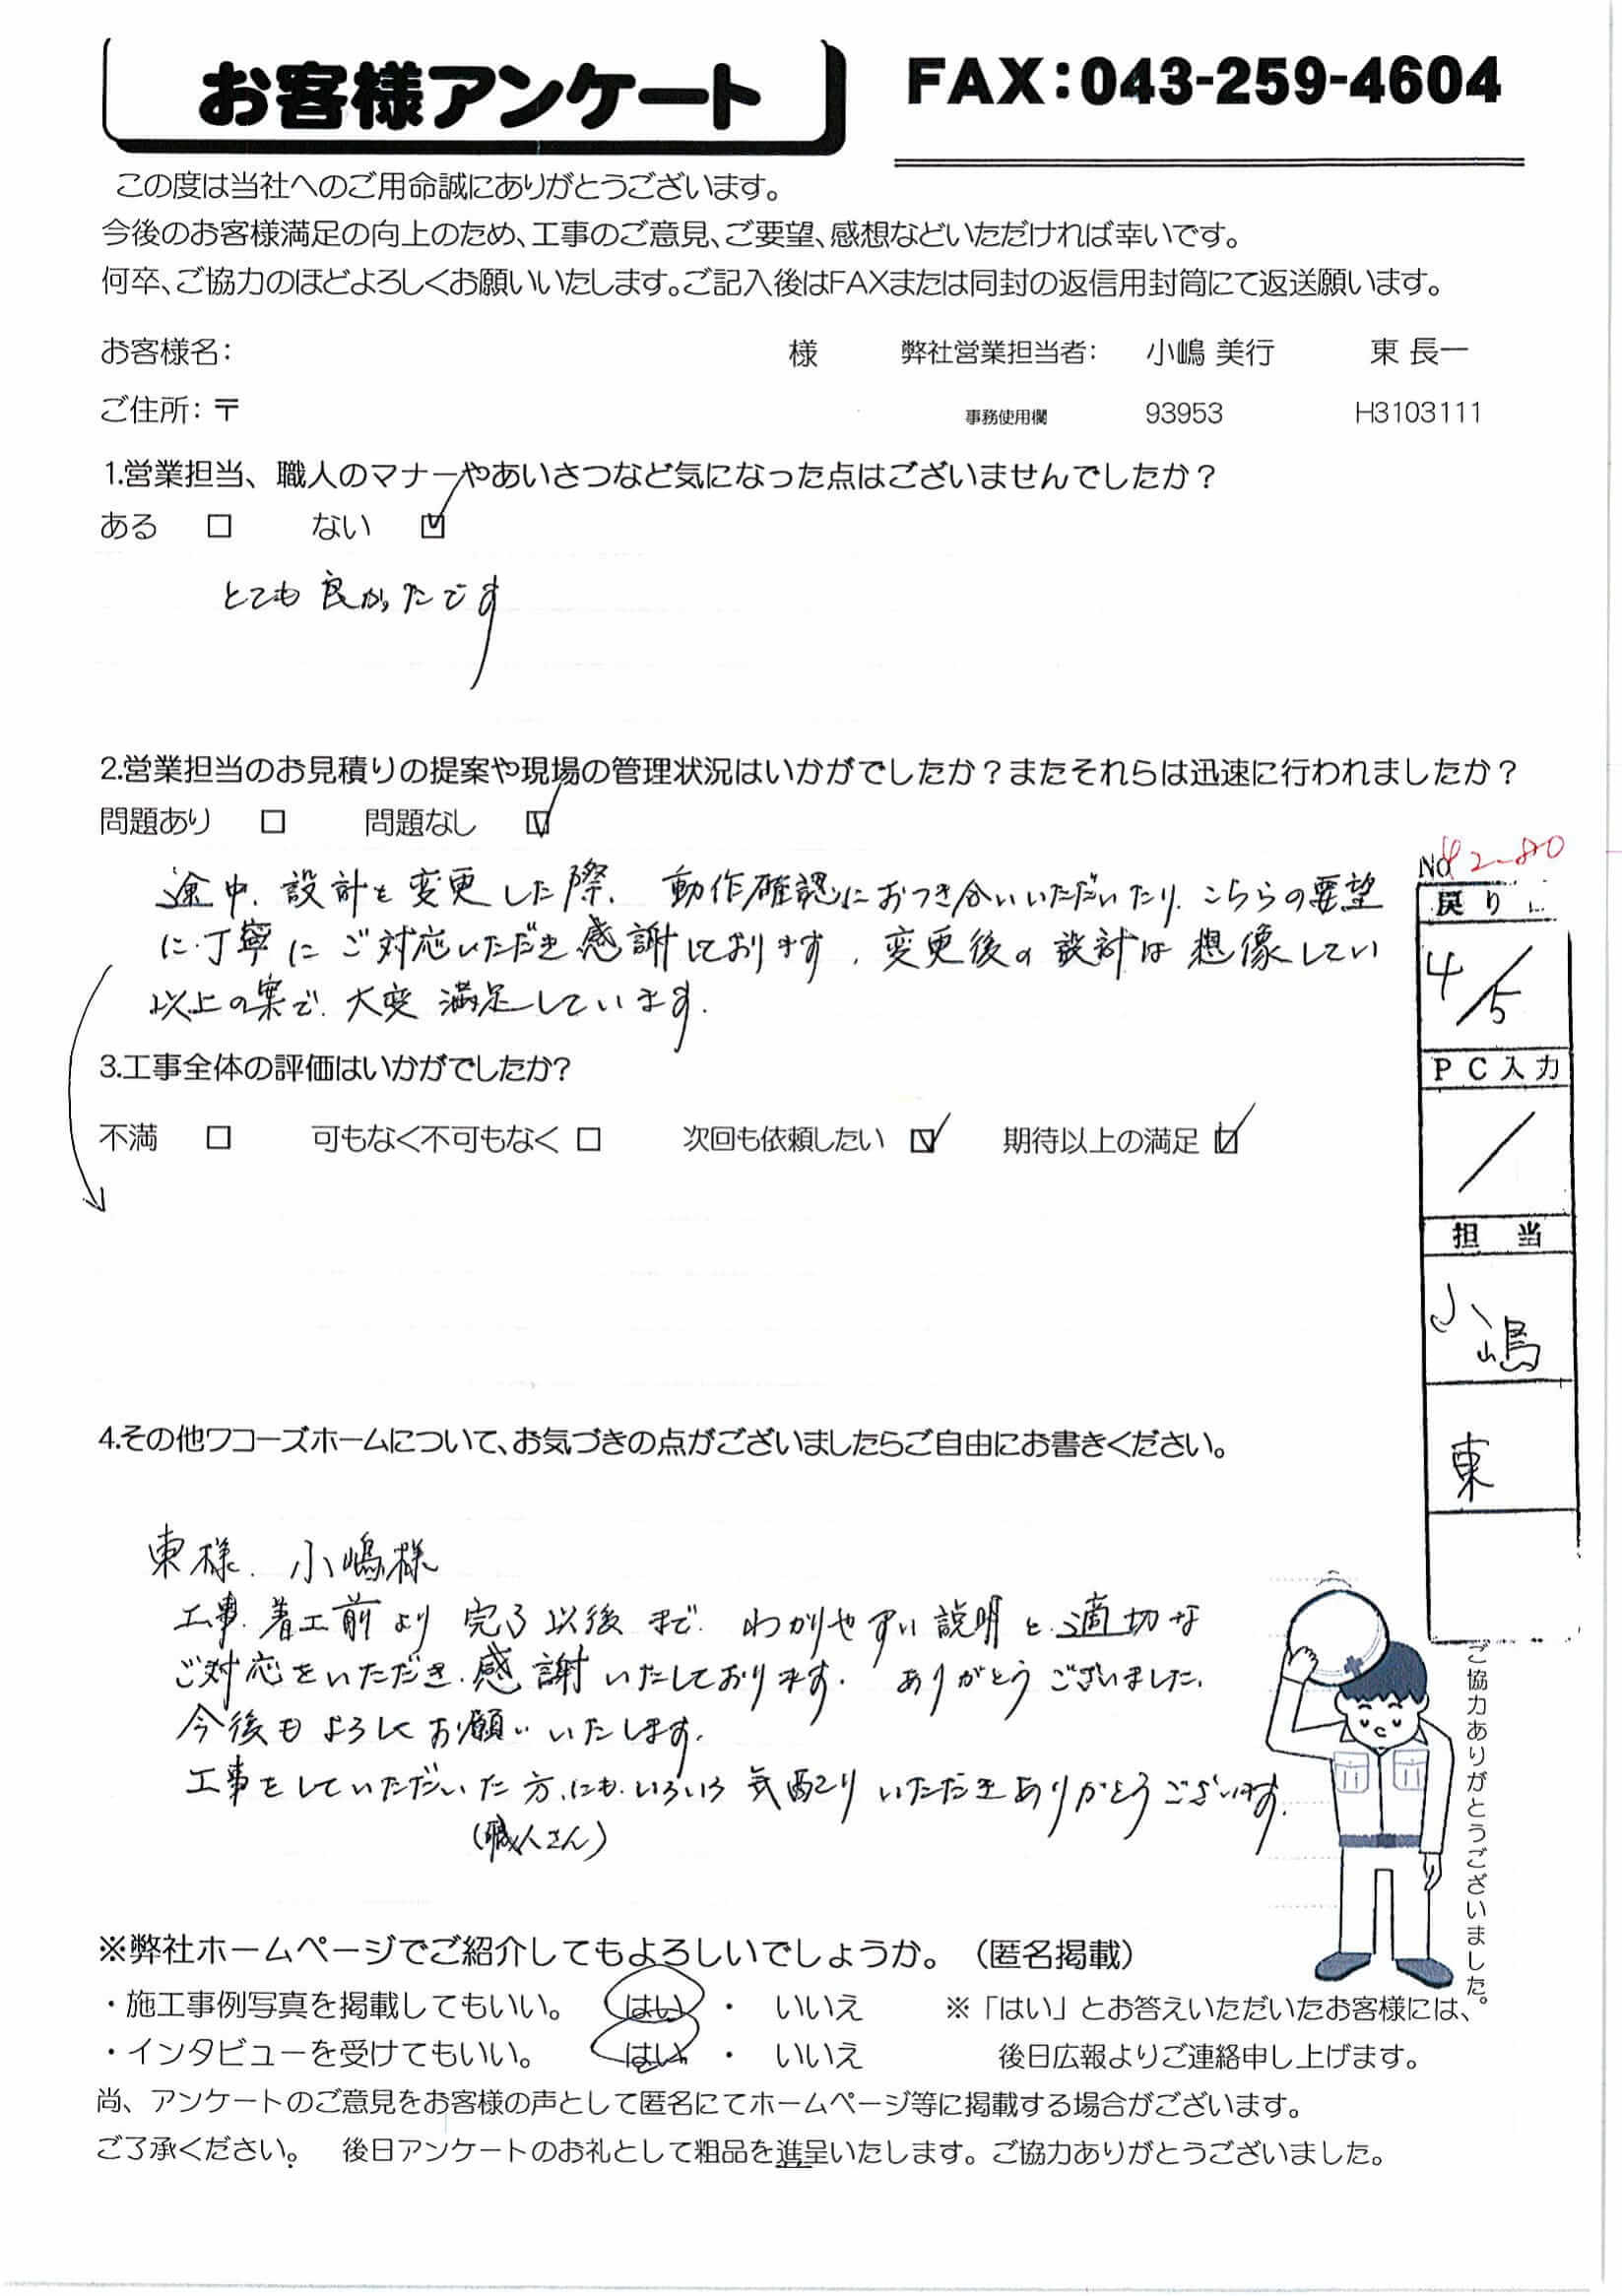 お客様アンケート
FAX:043-259-4604
この度は当社へのご用命誠にありがとうございます。
今後のお客様満足の向上のため、工事のご意見、ご要望、感想などいただければ幸いです。
何卒、ご協力のほどよろしくお願いいたします。ご記入後はFAXまたは同封の返信用封筒にて返送願います。
お客様名: 様 弊社営業担当者: 小嶋 美行 東 長一
ご住所:〒 事務使用欄 93953 H3103111
1.営業担当、職人のマナーやあいさつなど気になった点はございませんでしたか？
ある □ ない ☑
とても良かったです
2.営業担当のお見積りの提案や現場の管理状況はいかがでしたか？またそれらは迅速に行われましたか？
問題あり □ 問題なし ☑
途中、設計を変更した際、動作確認におつき合いいただいたり、こちらの要望
に丁寧にご対応いただき感謝しております。変更後の設計は想像してい
以上の案で、大変満足しています。
3.工事全体の評価はいかがでしたか?
不満 □ 可もなく不可もなく □ 次回も依頼したい ☑ 期待以上の満足 ☑
4.その他ワコーズホームについて、お気づきの点がございましたらご自由にお書きください。
東様、小嶋様
工事着工前より完了以後まで、わかりやすい説明と適切な
ご対応をいただき、感謝いたしております。ありがとうございました。
今後もよろしくお願いいたします。
工事をしていただいた方にも、いろいろ気配りいただきありがとうございます。
(職人さん)
No
戻り
4/5
PC入力
/
担当
小嶋
東
ご協力ありがとうございました。
※弊社ホームページでご紹介してもよろしいでしょうか。（匿名掲載）
・施工事例写真を掲載してもいい。 はい ・ いいえ ※「はい」とお答えいただいたお客様には、
・インタビューを受けてもいい。 はい ・ いいえ 後日広報よりご連絡申し上げます。
尚、アンケートのご意見をお客様の声として匿名にてホームページ等に掲載する場合がございます。
ご了承ください。 後日アンケートのお礼として粗品を進呈いたします。ご協力ありがとうございました。